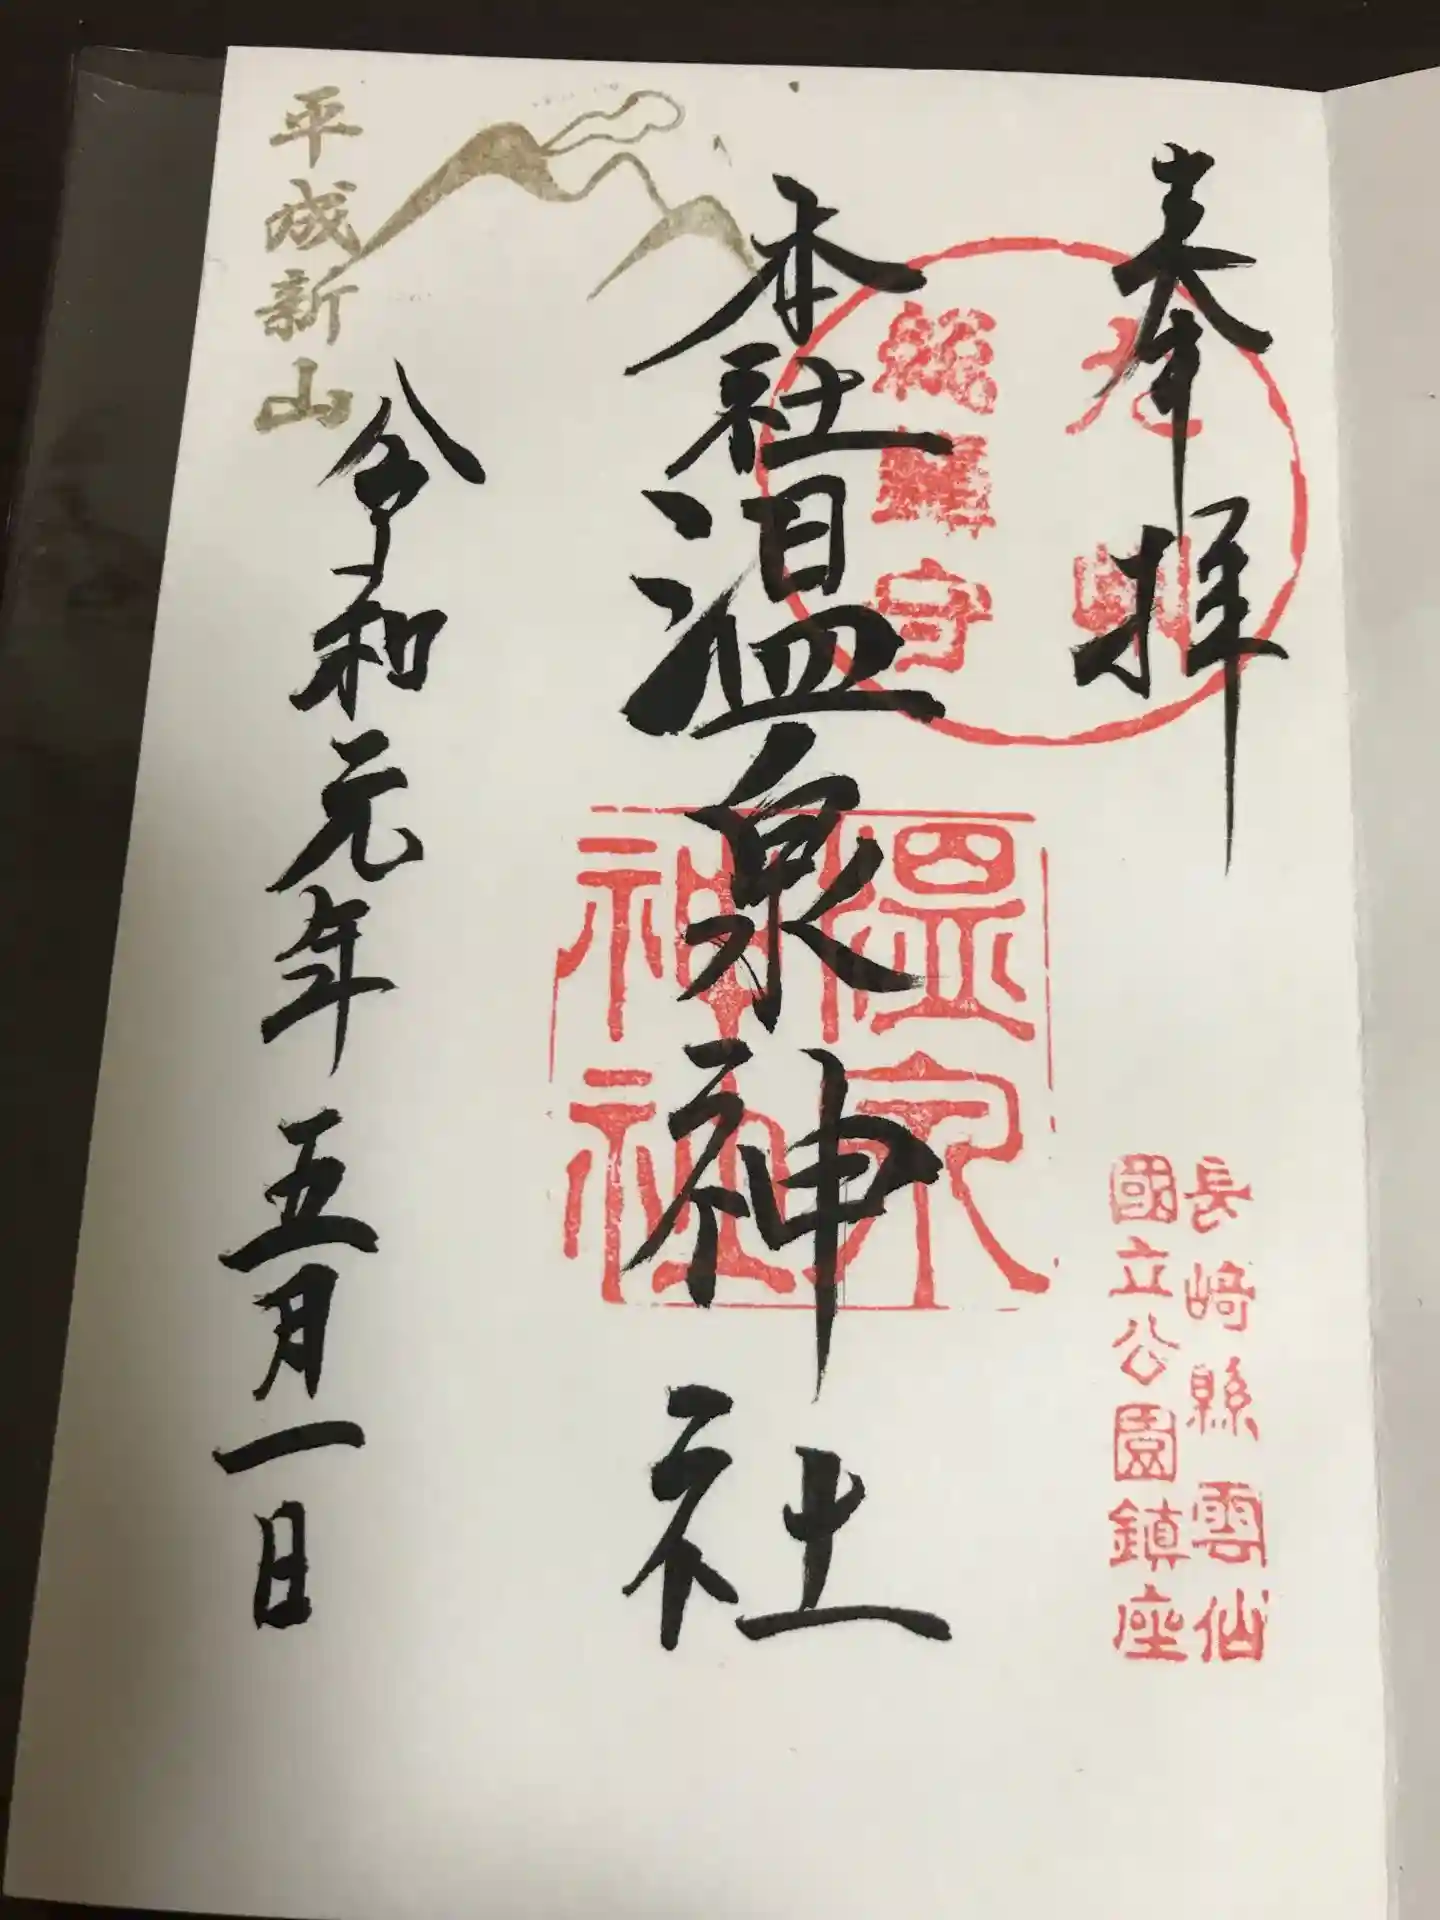 奉拝
九州
総鎮守
本社温泉神社
温泉
神社
長崎縣雲仙
國立公園鎮座
平成新山
令和元年五月一日